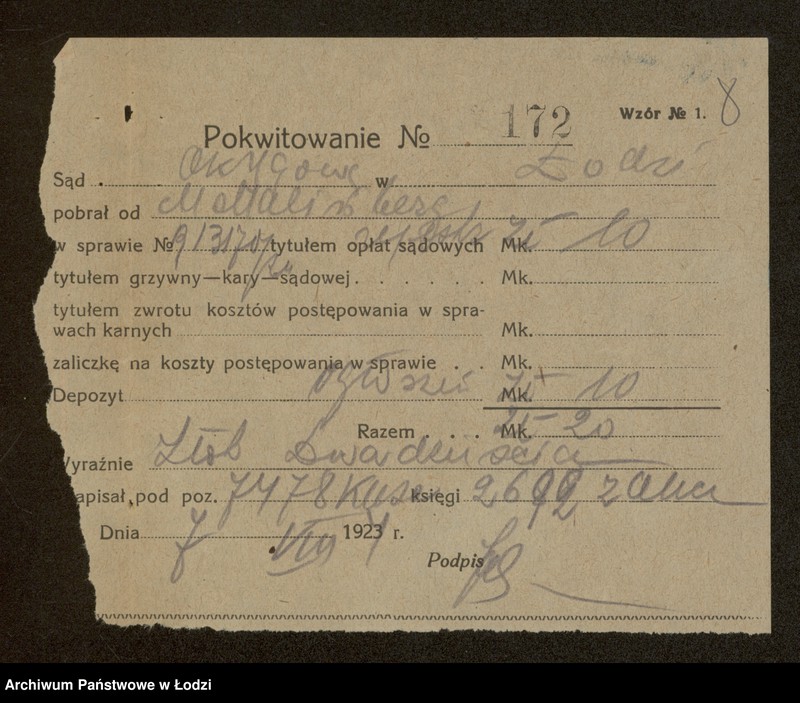 Pokwitowanie № 172 Wzór № 1. 8
Sąd Okręgowy w Łodzi
pobrał od
w sprawie № tytułem opłat sądowych Mk. zł 10
tytułem grzywny—kary—sądowej Mk.
tytułem zwrotu kosztów postępowania w spra-
wach karnych Mk.
zaliczkę na koszty postępowania w sprawie Mk.
Depozyt Mk. zł 10
Razem Mk. zł 20
yraźnie Złot Dwadzieścia
apisał pod poz. 7478 księgi
Dnia 7 VIII 1923 r.
Podpis
Archiwum Państwowe w Łodzi